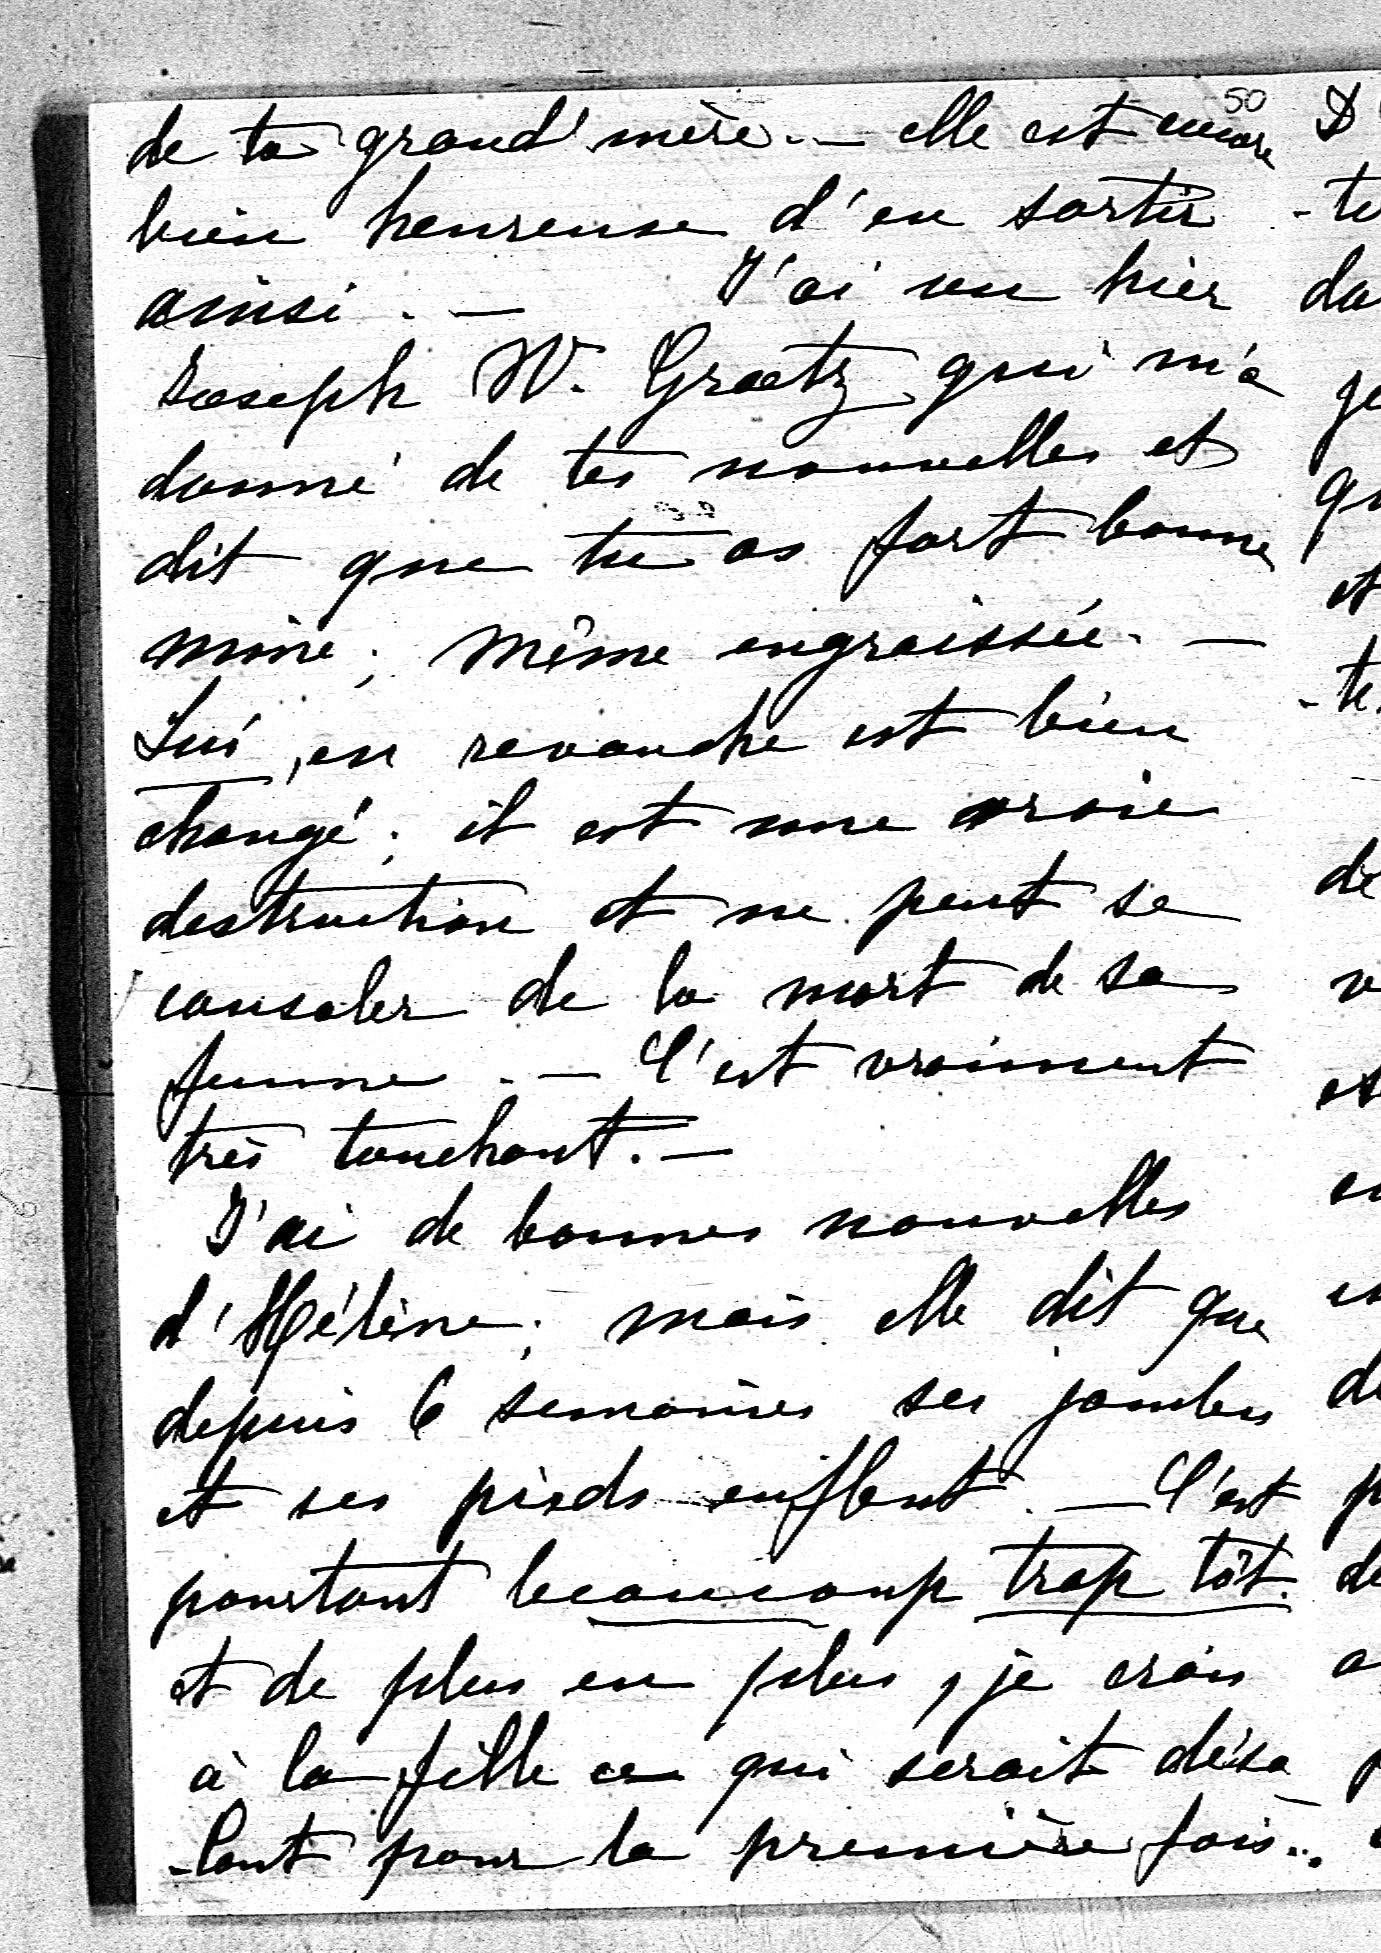 50
de ta grand'mère. — elle est encore
bien heureuse d'en sortir
ainsi. — J'ai vu hier
Joseph W. Graetz qui m'a
donné de tes nouvelles et
dit que tu as fort bonne
mine; même engraissée. —
Lui, en revanche est bien
changé; il est une vraie
destruction et ne peut se
consoler de la mort de sa
femme. — C'est vraiment
très touchant. —
J'ai de bonnes nouvelles
d'Hélène; mais elle dit que
depuis 6 semaines ses jambes
et ses pieds enflent. — C'est
pourtant beaucoup trop tôt.
et de plus en plus, je crois
à la fille ce qui serait déso
-lant pour la première fois...